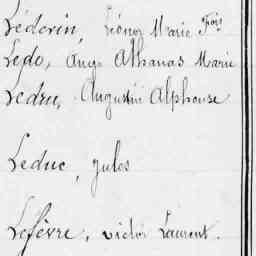 Léderin, Léonor Marie Fois
Ledo, Ange Athanas Marie
Ledru, Augustin Alphonse
Leduc, Jules
Lefèvre, Victor Laurent.